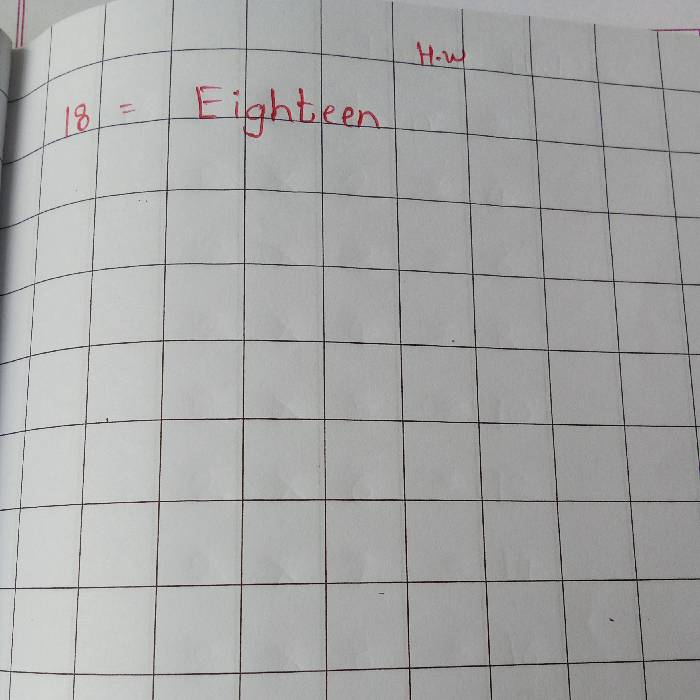 H.W
18 = Eighteen